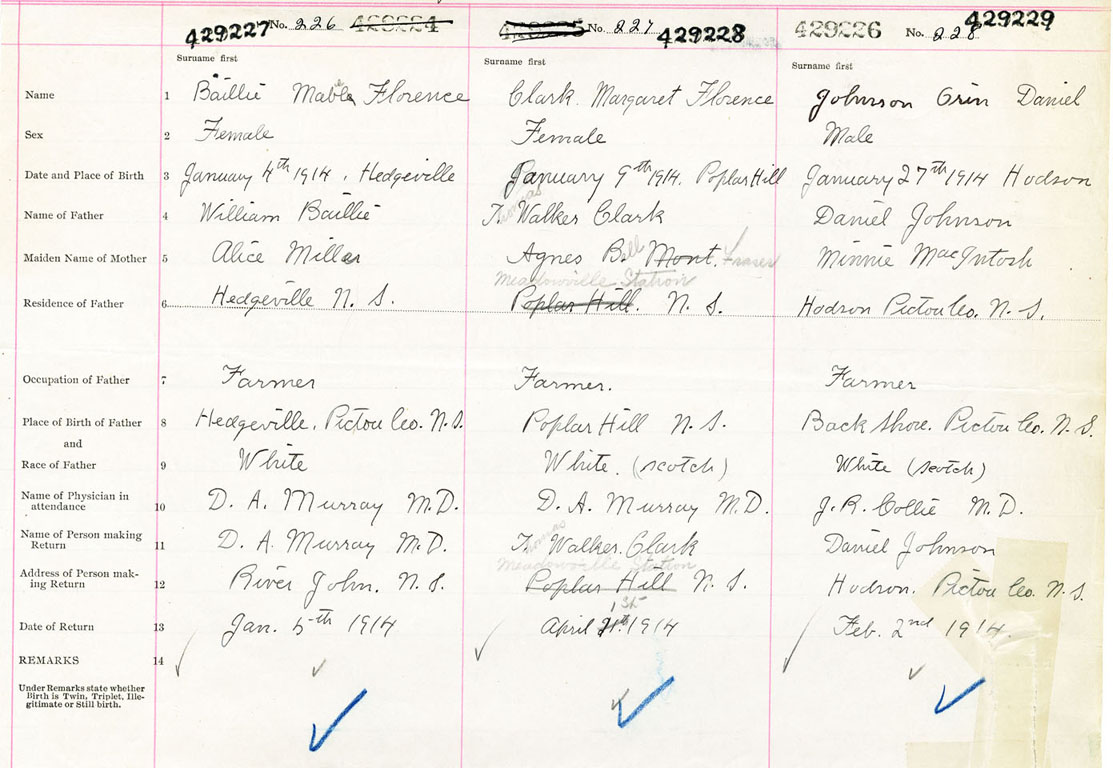 429227 No. 226 429224 429225 No. 227 429228 429226 No. 228 429229
Surname first Surname first Surname first
Name 1 Baillie Mable Florence Clark. Margaret Florence Johnson Orin Daniel
Sex 2 Female Female Male
Date and Place of Birth 3 January 4th 1914, Hedgeville January 9th 1914. Poplar Hill January 27th 1914 Hodson
Thomas
Name of Father 4 William Baillie T. Walker Clark Daniel Johnson
Maiden Name of Mother 5 Alice Miller Agnes Bell Mont. Fraser Minnie MacIntosh
Meadowville Station
Residence of Father 6 Hedgeville N. S. Poplar Hill. N. S. Hodson Pictou Co. N. S.
Occupation of Father 7 Farmer Farmer. Farmer
Place of Birth of Father 8 Hedgeville, Pictou Co. N. S. Poplar Hill N. S. Back Shore. Pictou Co. N. S.
and
Race of Father 9 White White. (Scotch) White (Scotch)
Name of Physician in
attendance 10 D. A. Murray M. D. D. A. Murray M. D. J. R. Collie M. D.
Thomas
Name of Person making
Return 11 D. A. Murray M. D. T. Walker. Clark Daniel Johnson
Meadowville Station
Address of Person mak-
ing Return 12 River John, N. S. Poplar Hill N. S. Hodson. Pictou Co. N. S.
1st
Date of Return 13 Jan. 5th 1914 April 1914 Feb. 2nd 1914.
REMARKS 14
Under Remarks state whether
Birth is Twin, Triplet, Ille-
gitimate or Still birth.